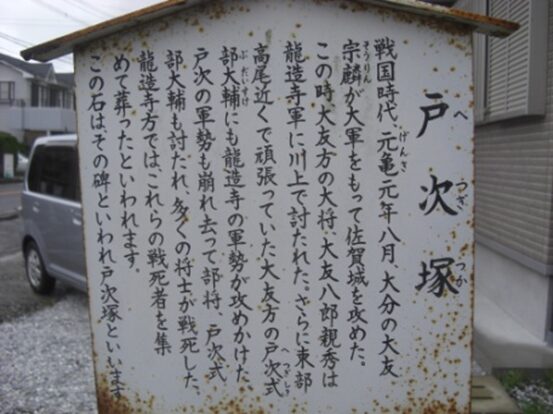 戸次塚
へ
つぎ
つか
戦国時代、元亀元年八月、大分の大友
げんき
宗麟が大軍をもって佐賀城を攻めた。
そうりん
この時、大友方の大将、大友八郎親秀は
龍造寺軍に川上で討たれた。さらに東部
高尾近くで頑張っていた大友方の戸次式
へつぎしき
部大輔にも龍造寺の軍勢が攻めかけた。
ぶだいすけ
戸次の軍勢も崩れ去って部将、戸次式
部大輔も討たれ、多くの将士が戦死した。
龍造寺方では、これらの戦死者を集
めて葬ったといわれます。
この石は、その碑といわれ戸次塚といいます